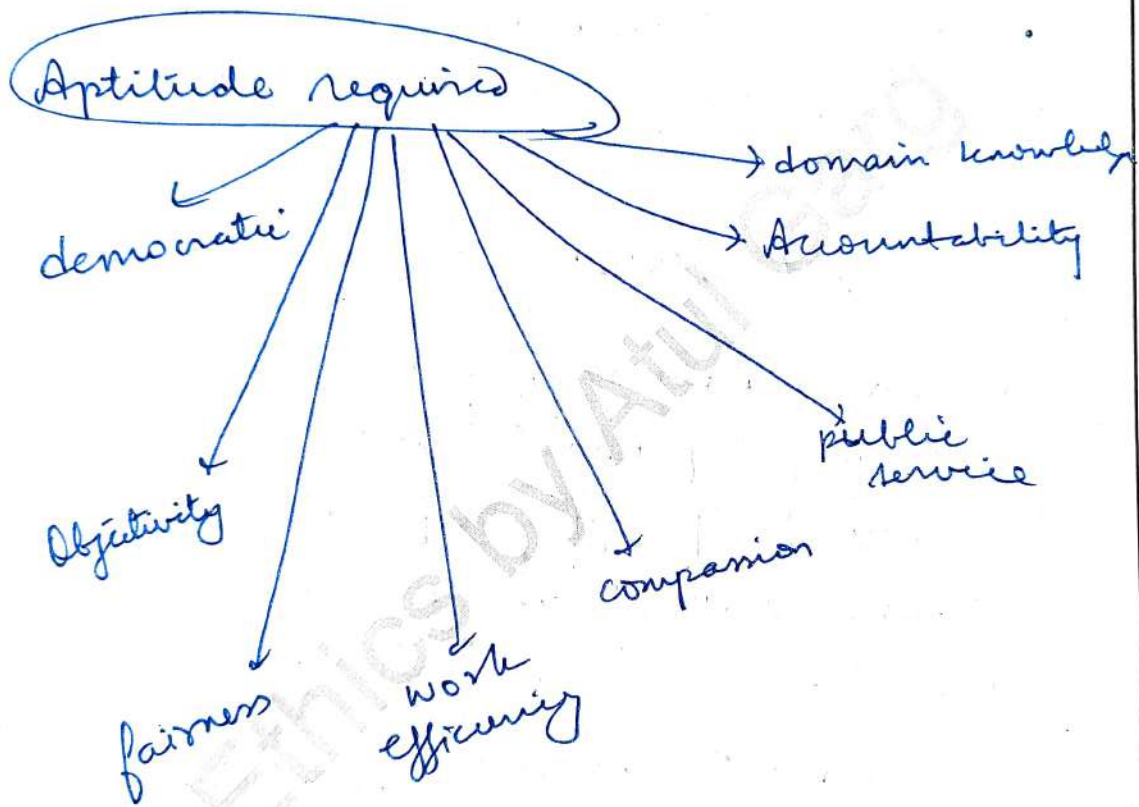 Aptitude required
domain knowledge
democratic
Accountability
public
service
Objectivity
compassion
fairness
work
efficiency
Ethics by Atul Garg